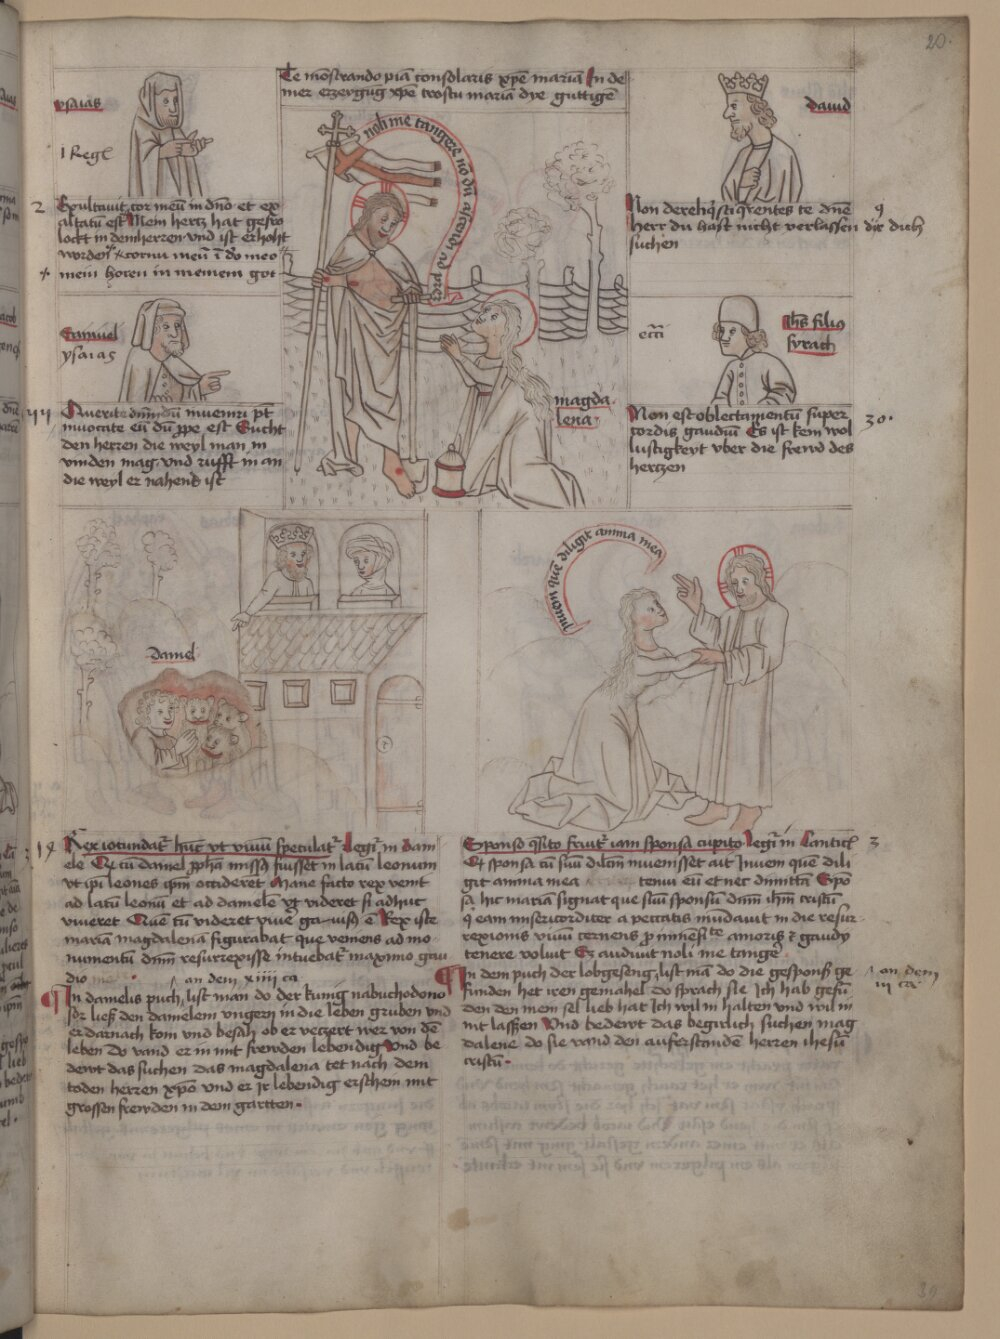 20.
Te mo̅strando pia̅ consolaris xp̅e maria̅ In de
mer erzeygug xp̅e trostu maria̅ dye guttige̅
ysaias
1 Reg͛
2 Exultauit cor meu̅ in dn̅o et ex
altatu̅ est Mein hertz hat gefro
lockt in dem herren und ist erhoht
worden cornu meu̅ i̅ deo meo
mein horen in meinem got
dauid
Non dereliq̅sti q̅rentes te dn̅e 9
Herr du hast nicht verlassen die dich
suchen
noli me tangere no̅du̅ ascendi ad pr̅e̅
Samuel
ysaias
Querite dn̅m du̅ inueniri p̅t
inuocate eu̅ du̅ p̅pe est Sucht
den herren die weyl man in
vinden mag und rufft in an
die weyl er nahend ist
magda
lena
ecc̅i
Ih̅s filiꝯ
syrach
Non est oblectamentu̅ super 30.
cordis gaudiu̅ Es ist kein wol
lustigkeyt vber die frewd des
hertzen
daniel
inueni que̅ diligit anima mea
Rex iocundat͛ hu̅c vt viuu̅ speculat͛ Legit͛ in dani
ele Q̅ cu̅ daniel p̅pha̅ missꝯ fuisset in lacu̅ leonum
vt ip̅i leones ip̅m occideret Mane facto rex venit
ad lacu̅ leonu̅ et ad daniele̅ vt videret si adhuc
viueret Que̅ cu̅ videret viue̅ ga-uisꝯ e̅ Rex iste
maria̅ magdalena̅ figurabat que veniens ad mo
numentu̅ dn̅m resurrexisse intuebat͛ maximo gau
dio
an dem xiiii ca
In danielis puch, list man do der kunig nabuchodono
sor ließ den danielem vngern in die leben gruben und
er darnach kom und besah ob er verzert wer von de̅
leben do vand er in mit frewden lebendig Und be
dewt das suchen das magdalena tet nach dem
toden herren xp̅o und er ir lebendig erschein mit
grossen frewden in dem gartten.
Sponso q̅sito fruit͛ iam sponsa cupito Legit͛ in Cantic͛ 3
Q̅ sponsa cu̅ suu̅ dilcm̅ inuenisset ait Inueni que̅ dili
git anima mea tenui eu̅ et nec dimitta̅ Spo̅
sa hic maria̅ signat que suu̅ sponsu̅ dn̅m ih̅m cristu̅
q̅ eam misericorditer a peccatis mu̅dauit in die resur-
rexionis viuu̅ cernens p̅ inme̅site amoris & gaudy
tenere voluit Et audiuit noli me tange͛
In dem puch der lobgeseng, list ma̅ do die gespons ge
funden het iren gemahel do sprach sie Ich hab gefu̅
den den mein sel lieb hat Ich wil in halten und wil in
nit lassen Und bedewt das begirlich suchen mag
dalene do sie vand den aufferstande̅ herren ihesu̅
cristu̅.
an dem
iii ca